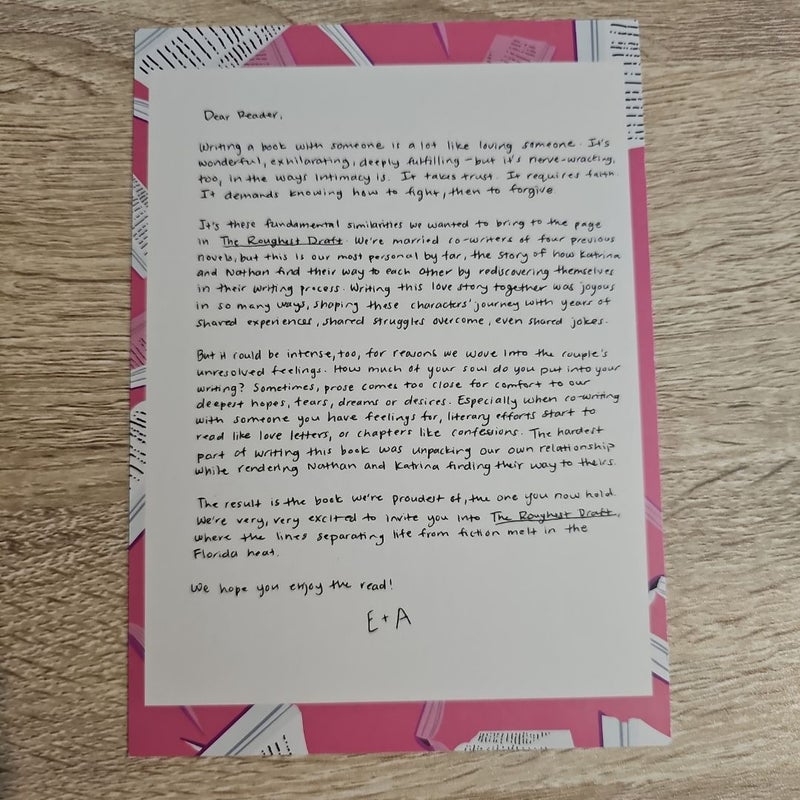 Dear Reader,
Writing a book with someone is a lot like loving someone. It's
wonderful, exhilarating, deeply fulfilling – but it's nerve-wracking,
too, in the ways intimacy is. It takes trust. It requires faith.
It demands knowing how to fight, then to forgive.
It's these fundamental similarities we wanted to bring to the page
in The Roughest Draft. We're married co-writers of four previous
novels, but this is our most personal by far, the story of how Katrina
and Nathan find their way to each other by rediscovering themselves
in their writing process. Writing this love story together was joyous
in so many ways, shaping these characters' journey with years of
shared experiences, shared struggles overcome, even shared jokes.
But it could be intense, too, for reasons we wove into the couple's
unresolved feelings. How much of your soul do you put into your
writing? Sometimes, prose comes too close for comfort to our
deepest hopes, fears, dreams or desires. Especially when co-writing
with someone you have feelings for, literary efforts start to
read like love letters, or chapters like confessions. The hardest
part of writing this book was unpacking our own relationship
while rendering Nathan and Katrina finding their way to theirs.
The result is the book we're proudest of, the one you now hold.
We're very, very excited to invite you into The Roughest Draft,
where the lines separating life from fiction melt in the
Florida heat.
We hope you enjoy the read!
E + A